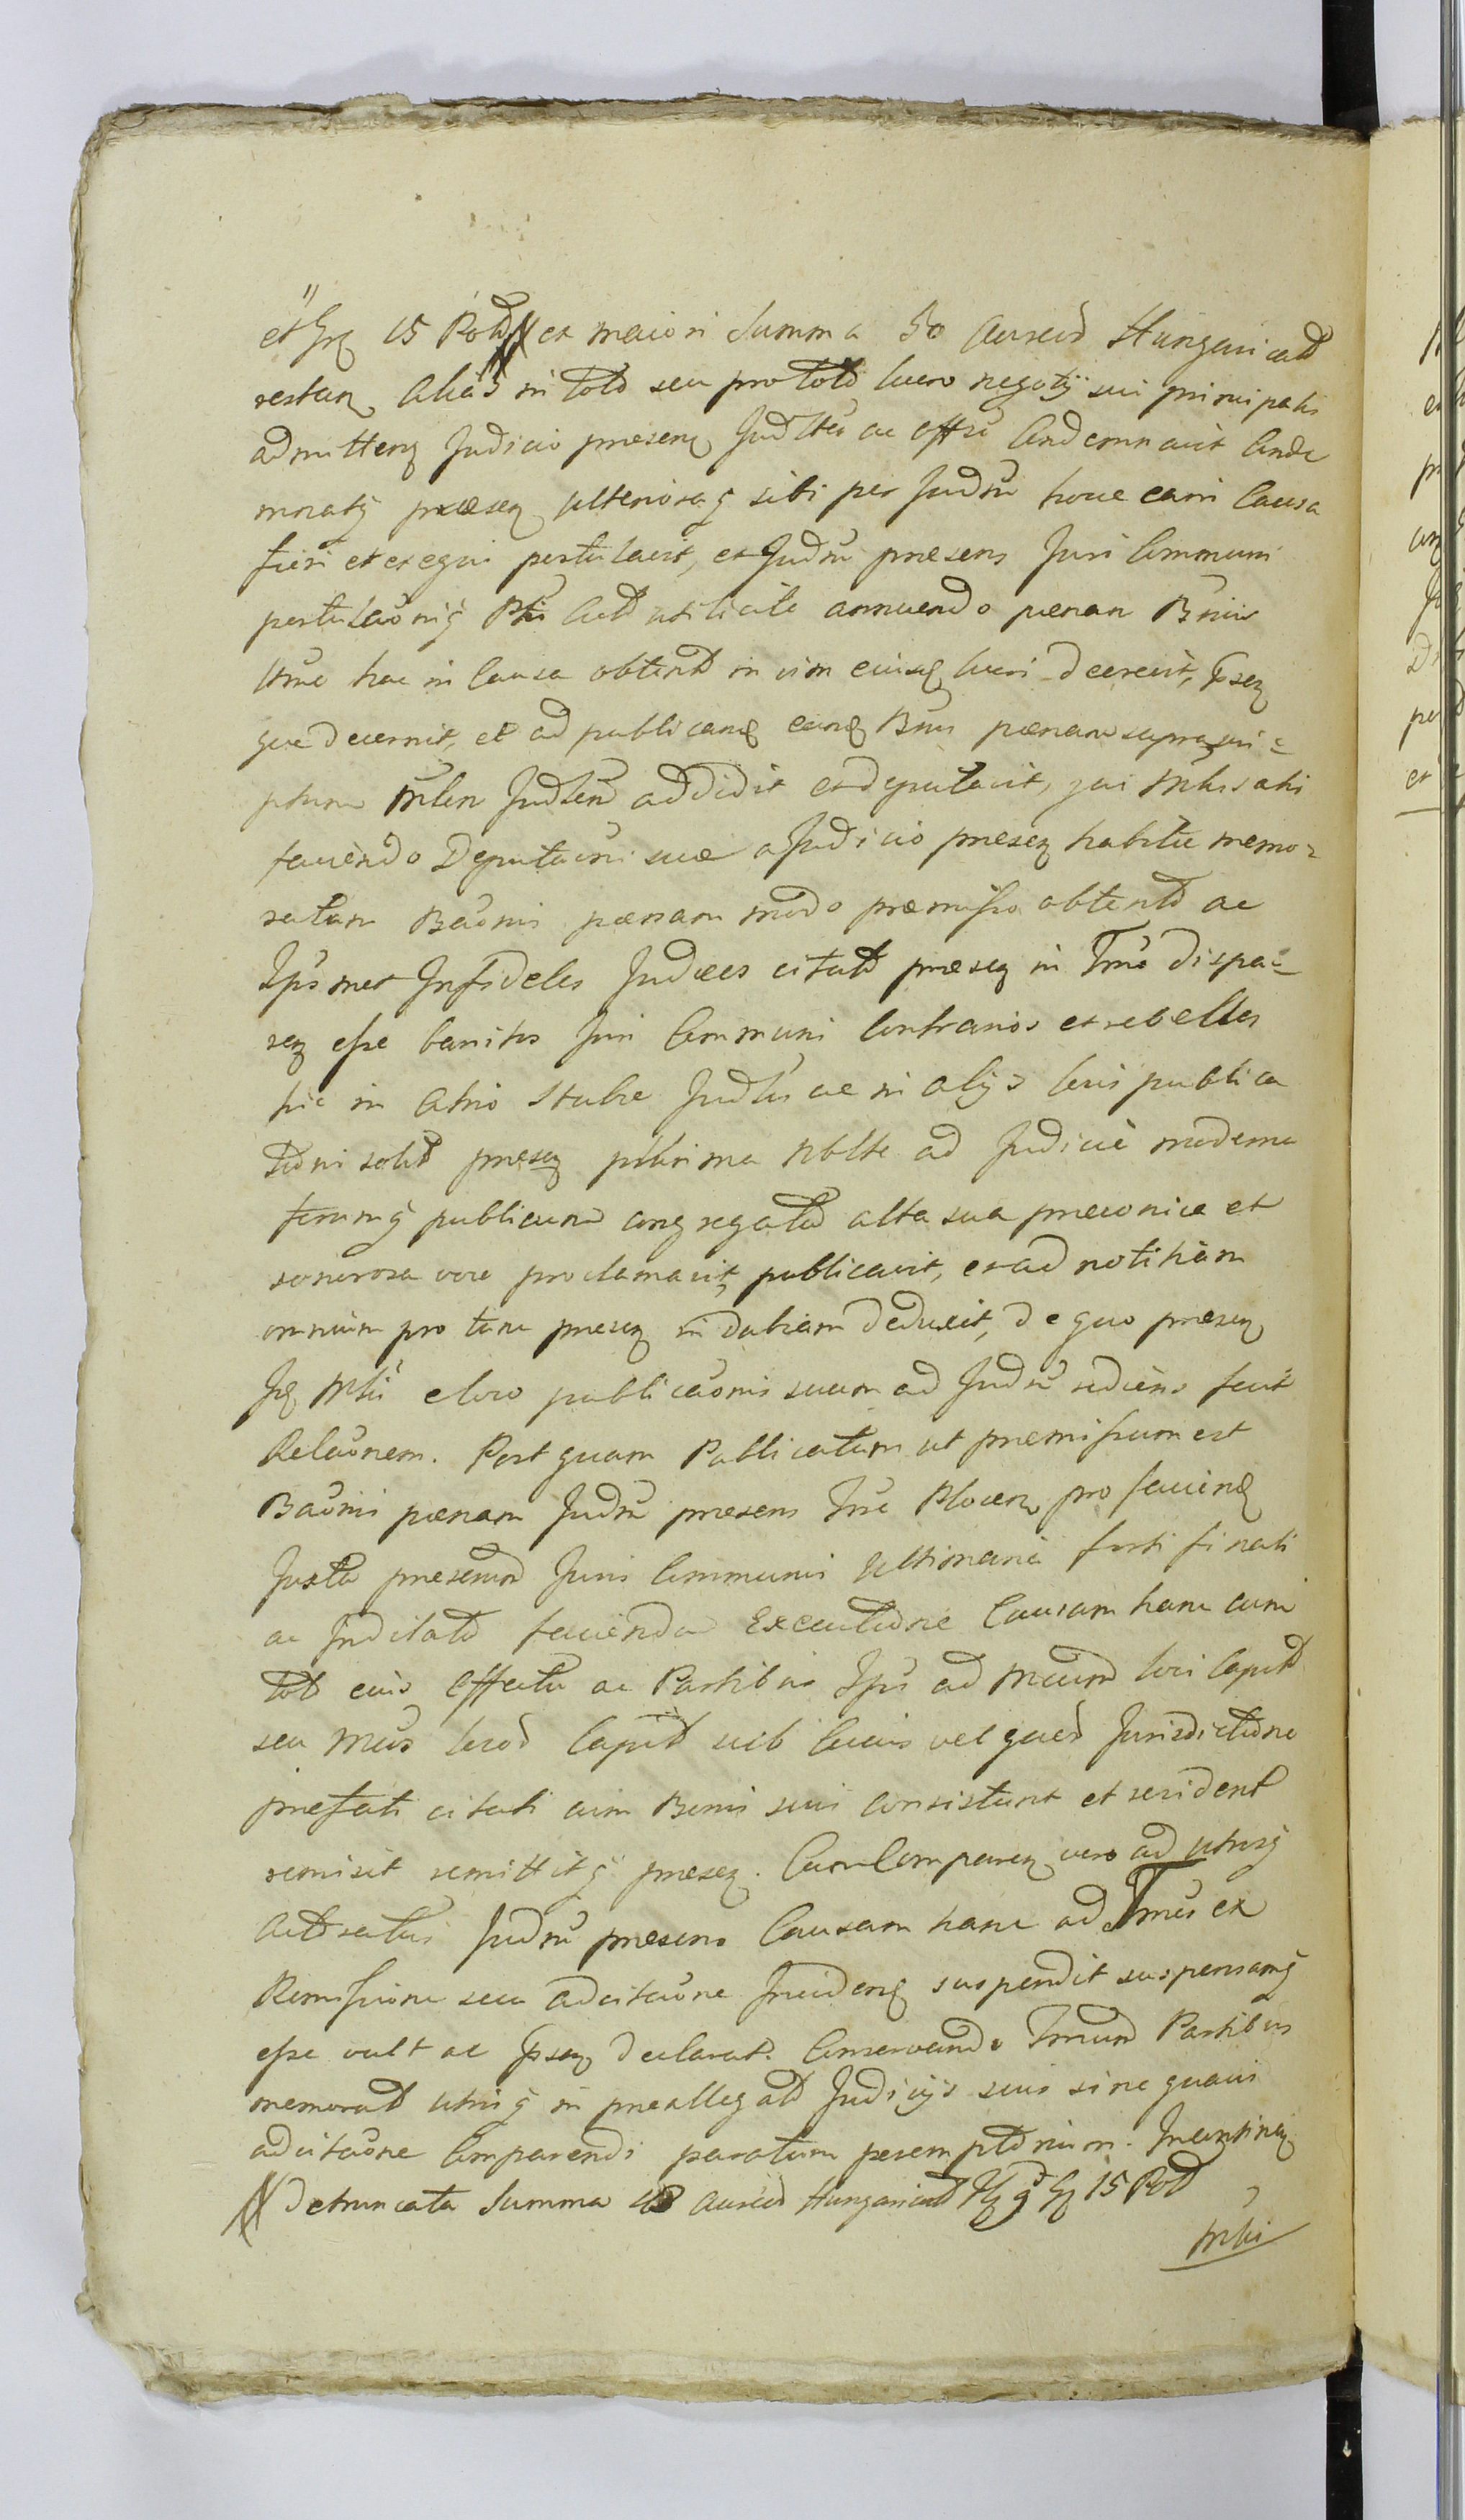 et grs 15 Polo ex maiori Summa 50 Aureor Hungarical
restan, Alias in toto seu pro toto lucro negotij sui principalis
admitten Judicio praesen Judltr ac offso Condemnavit Conde
mnatq praesen ulterioraq sibi per Judm hocce eam Causa
fieri et exequi postulavit, et Judm praesens Juri Communi
postulaoniq Ptis Act utilicite annuendo paenam Bnis
ltme hac in Causa obtent in vim eiusd lucri decrevit, psen
que decernit, et ad publicand eand Bnis paenam suprascri=
ptum Mlen Judlem addidit et deputavit, qui Mlrs satis
faciendo Deputaoni suae a Judicio praesen habitae memo=
ratam Baonis paenam modo praemisso obtent ac
Ipsmet Infideles Judaeos citat praesen in Tmo dispa=
ren esse banitos Juri Communi Contrarios et rebelles
hic in Atrio Stubae Judlis ac in alijs locis publica
tioni solit praesen plurima Nblte ad Judicia moderna
forumq publicum congregato alta sua praeconica et
sonorosa voce proclamavit, publicavit, et ad notitiam
omnium pro tunc praesen indubiam deduxit, de quo praesen
Id Mlr e loco publicaonis suam ad Judm rediens fecit
Relaonem. Post quam Publicatam ut praemissum est
Baonis paenam Judm praesens Tme Plocen, pro faciend
Juxta praesenm Juris Communis Ultimaria forti finali
ac Indilato facienda Executione Causam hanc cum
tot eius effectu ac Partibus Ipis ad Mcum loci Capit
seu Mcus locor Capit sub Cuius vel quor Jurisdictione
praefati citati cum Bonis suis consistunt et resident
remisit remittitq praesen. Cum Comparen vero ad utrosq
Actoratus Judm praesens Causam hanc ad Tmos ex
Remissione seu adcitaone Inciden suspendit suspensamq
esse vult ac psen declarat. Conservando Tmum Partibus
memorat utriq in praeallegat Judicijs suis sine quavis
adcitaone Comparendi paratum peremptorium. In Continen
// detruncata Summa 48 Aureor Hungarical Fl 9 gr 15 Pol
Mlri